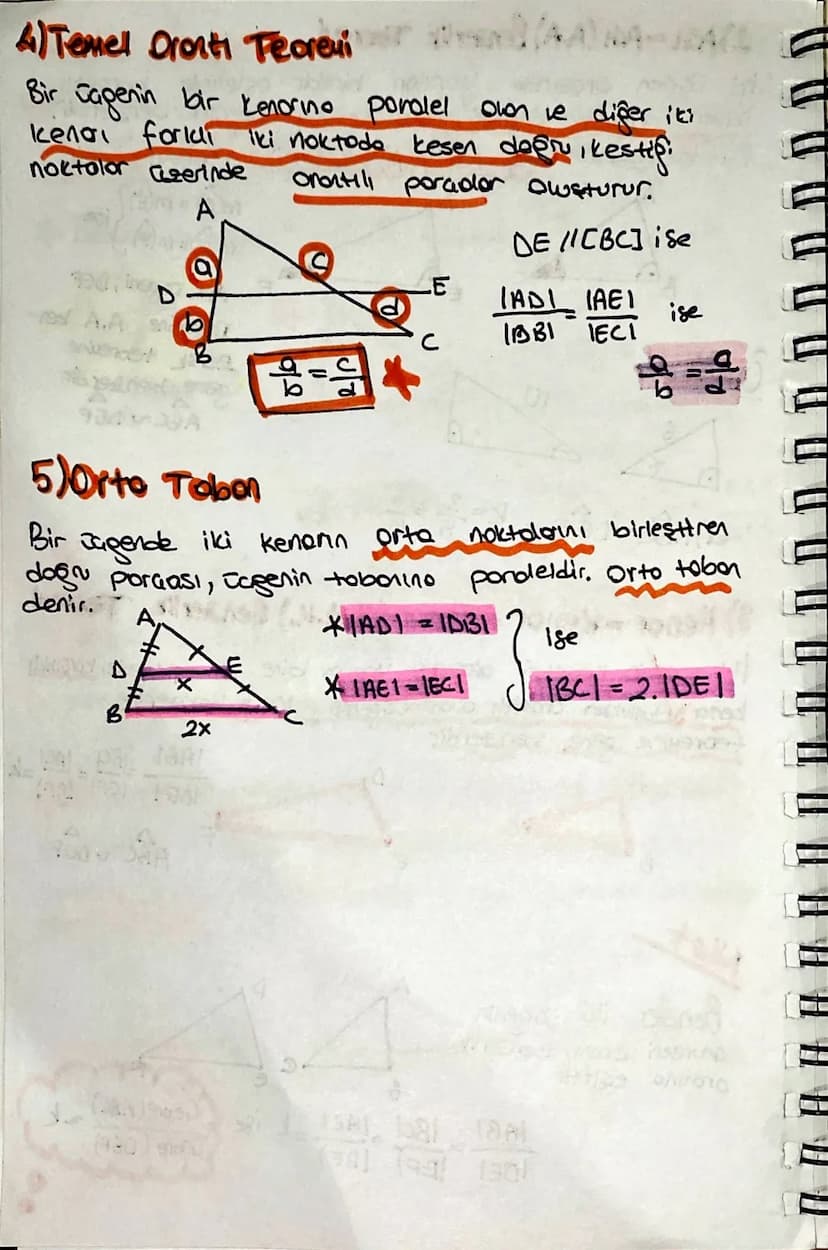 4) Temel Orantı Teoremi
Bir üçgenin bir kenarına paralel olan ve diğer iki
kenarı farklı iki noktada kesen doğru, kestiği
noktalar üzerinde orantılı parçalar oluşturur.
A
a
c
D
E
b
d
B
C
a/b = c/d
DE // [BC] ise
|AD|/|BB| = |AE|/|EC| ise
a/b = a/d
5) Orta Taban
Bir üçgende iki kenarın orta noktalarını birleştiren
doğru parçası, üçgenin tabanına paraleldir. Orta taban
denir.
A
D
E
x
B
C
2x
*|AD| = |DB|
*|AE| = |EC|
ise
|BC| = 2.|DE|